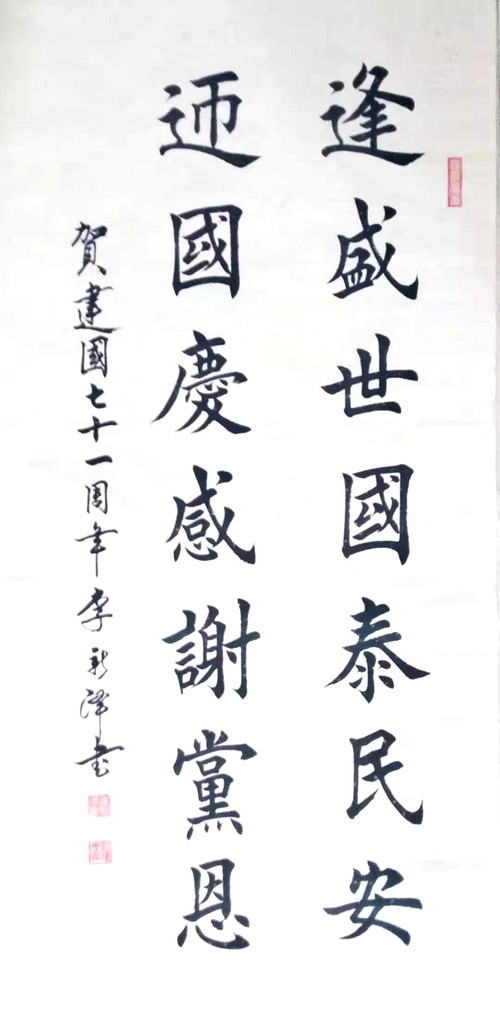 逢盛世國泰民安
迊國慶感謝黨恩
賀建國七十一周年李新澤書